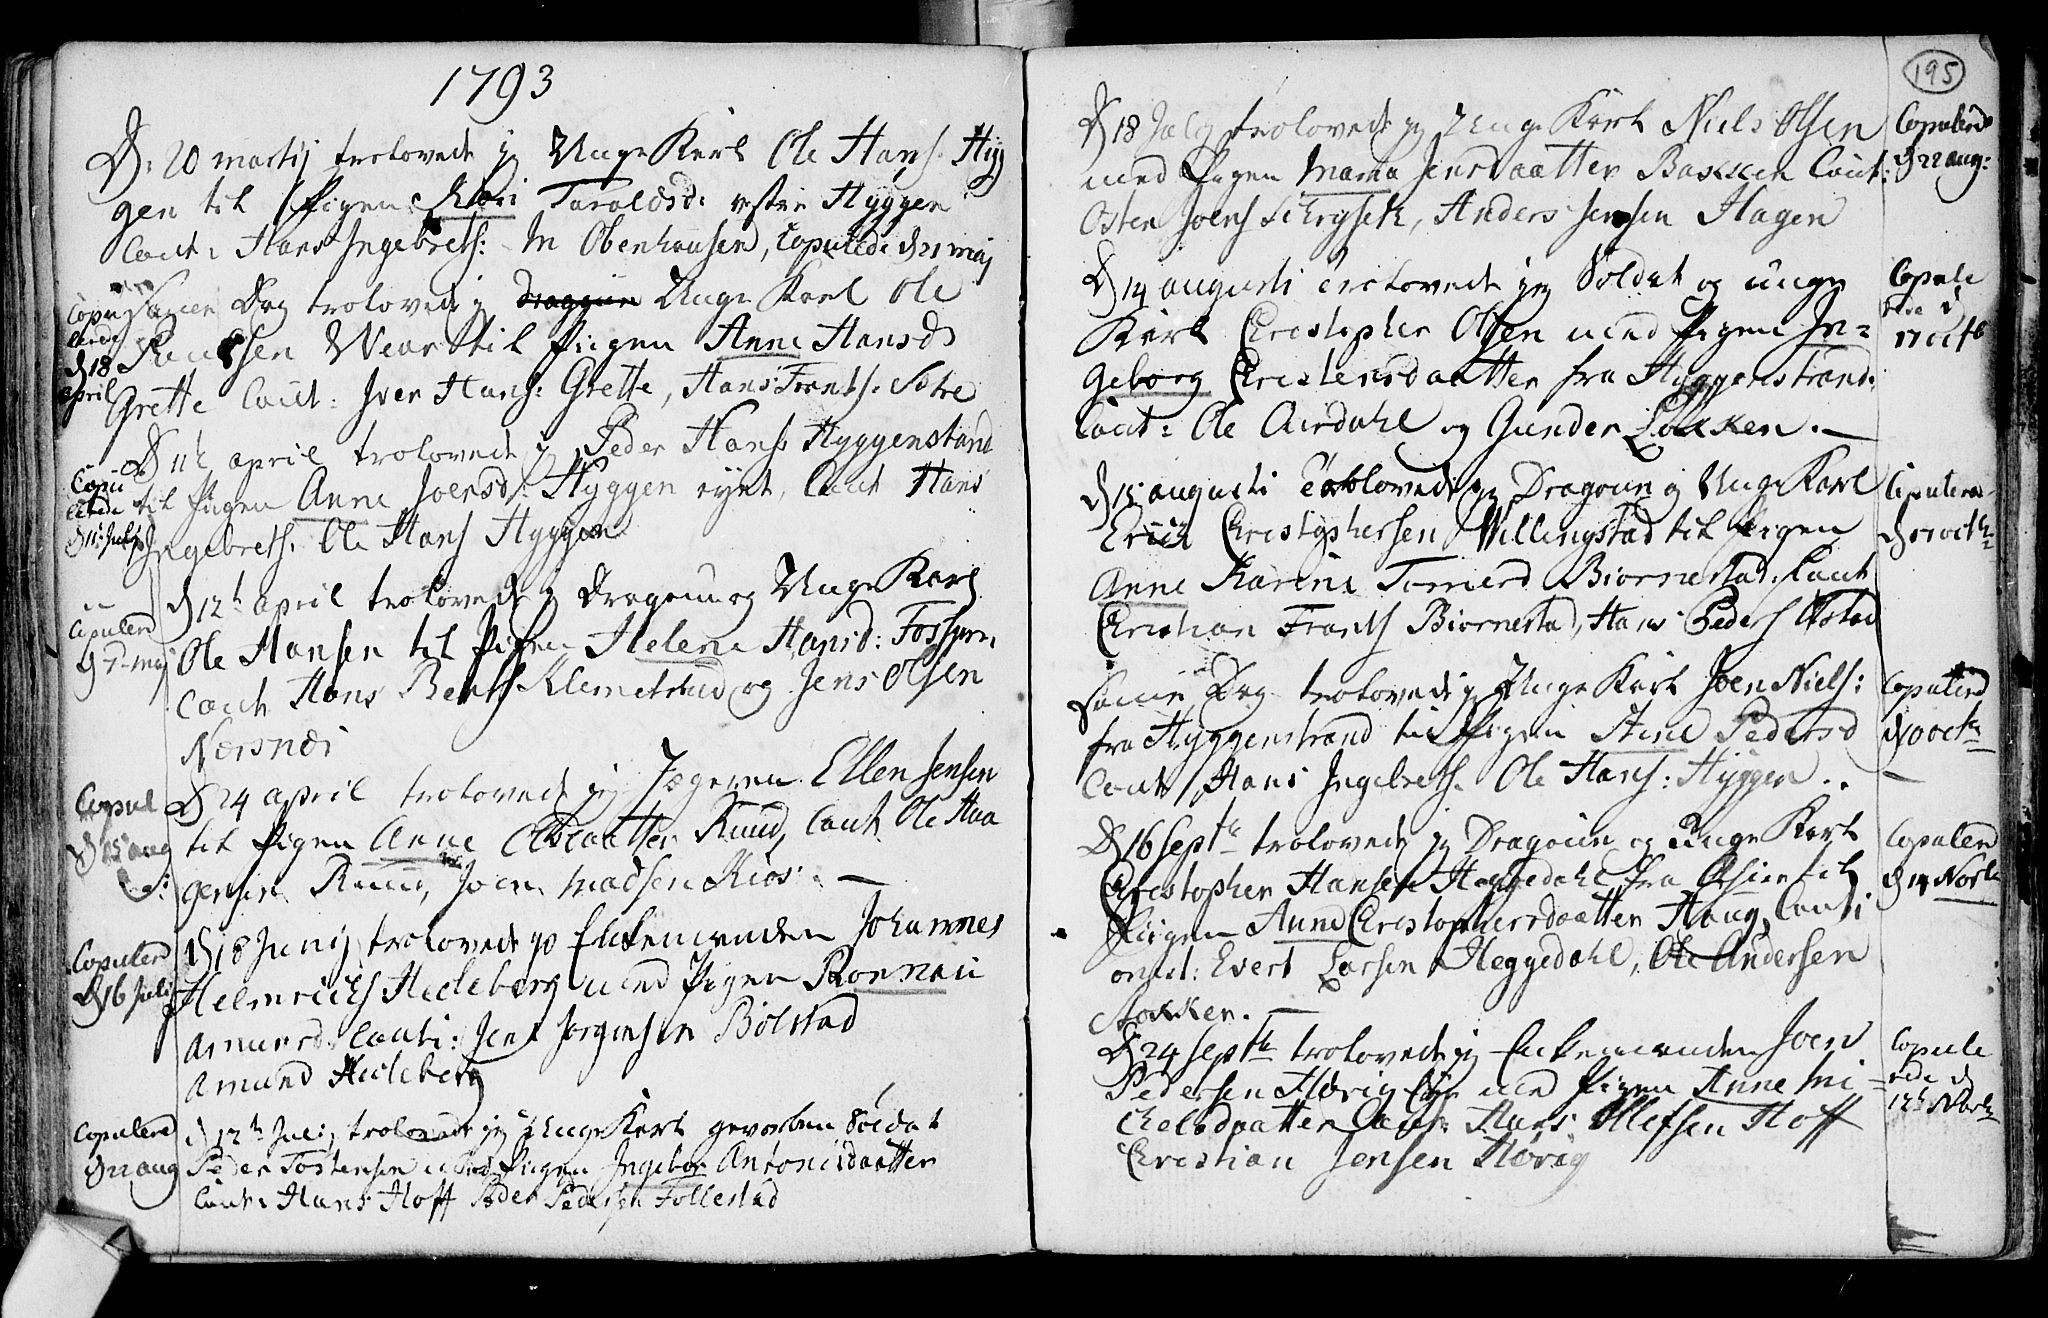 1793
D: 20 martij trolovede jg Unge Karl Ole Hans: Hyg
gen til Pigen Kari Taraldsd: vestre Hyggen
Caut: Hans Ingebrets: M Obenhausen, Copulede d 21 maj
Copu
lerede
d 18
april
Samme Dag trolovede jg Dragoun Unge Karl Ole
Wear til Pigen Anne Hansd
Grette Caut: Iver Hans: Grette, Hans Frants: Sætre
Copu
lerede
d 11 Julij
D 11t april trolovede jg Peder Hans Hyggenstrand
til Pigen Anne Joensd: Hyggen eyet, Caut Hans
Ingebrets. Ole Hans Hyggen
Copulerd
d 7 maj
d 12t april trolovede jg Dragoun og Unge Karl
Ole Hansen til Pigen Helene Hansd: Fossum.
Caut Hans Bents Klemetstad og Jens Olsen
Nersnæs
Copul
d 15 aug
D 24 april trolovede jg Jægeren Ellen Jensen
til Pigen Anne Olsdaatter Ruud, Caut Ole Haa
gensen Ruud, Joen Madsen Kios. —
Copulerd
d 16 Juli
d 18 Junij trolovede jg Enkemanden Johannes
Helmrichs Hedeberg med Pigen Ronnau
Amunds. Cauti: Jens Jorgensen Bölstad
Amund Hedeberg
Copulerd
d 22 aug
d 12t Julij trolovede jg Unge Karl gevorben Soldat
Peder Tostensen med Pigen Ingebor Antonisdaatter
Caut: Hans Hoff Peder Pedersen Follestad
195
D 18 July trolovede jg Unge Karl Niels Olsen
med Pigen Maria Jensdaatter Bakken Caut:
Osten Joens, Anders Jensen Hagen
Copulerd
d 22 aug:
D 14 augusti trolovede jeg Soldat og unge
Karl Christopher Olsen med Pigen In-
geborg Christensdaatter fra Hyggenstrand.
Caut: Ole Aurdahl og Gunder Løkken. —
Copule
rede d
17 octb
d 15 augusti trolovede jg Dragoun og Unge Karl
Erich Christophersen Willingstad til Pigen
Anne Karine Biornestad. Caut
Christian Frants Biornestad, Hans Peders Ustad
Copulerd
d 17 octb
Samme Dag trolovede jg Unge Karl Joen Niels:
fra Hyggenstrand til Pigen Anne Pedersd
Caut Hans Ingebrets. Ole Hans: Hyggen.
Copulerd
d 10 octb
D 16 Septb trolovede jg Dragoun og Unge Karl
Christopher Hansen Heggedahl fra Asker til
Pigen Anne Christophersdaatter Haug, Cauti
onist: Evert Larsen Heggedahl, Ole Andersen
Stokken. —
Copulerd
d 14 Novb
D 24 Septb trolovede jg Enkemanden Joen
Pedersen Hørig eye med Pigen Anne Mi-
chelsdaatter Caut: Hans Ollefsen Hoff
Christian Jensen Hörig
Copule
rede d
12t Novb